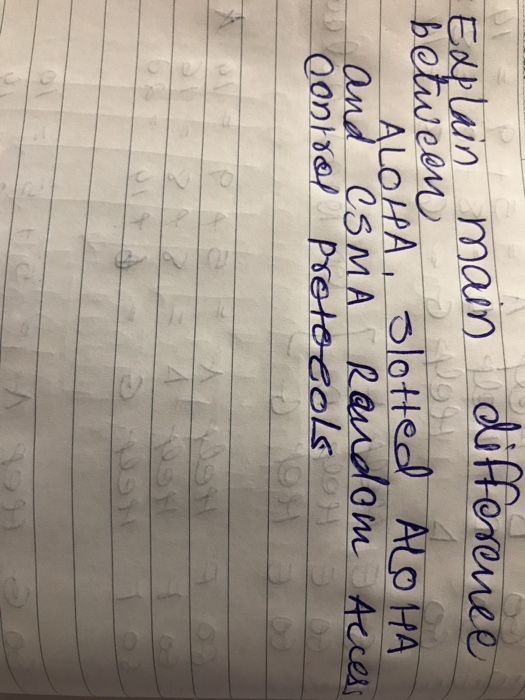 Explain main difference
between
ALOHA, Slotted ALOHA
and CSMA Random Access
Control protocols